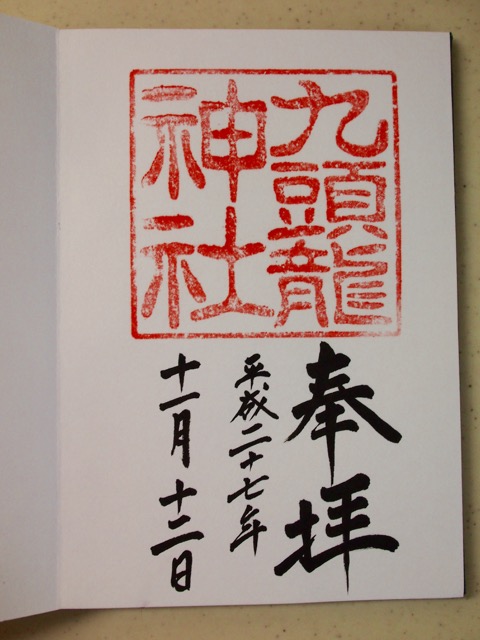 九頭龍
神社
奉拝
平成二十七年
十一月十二日